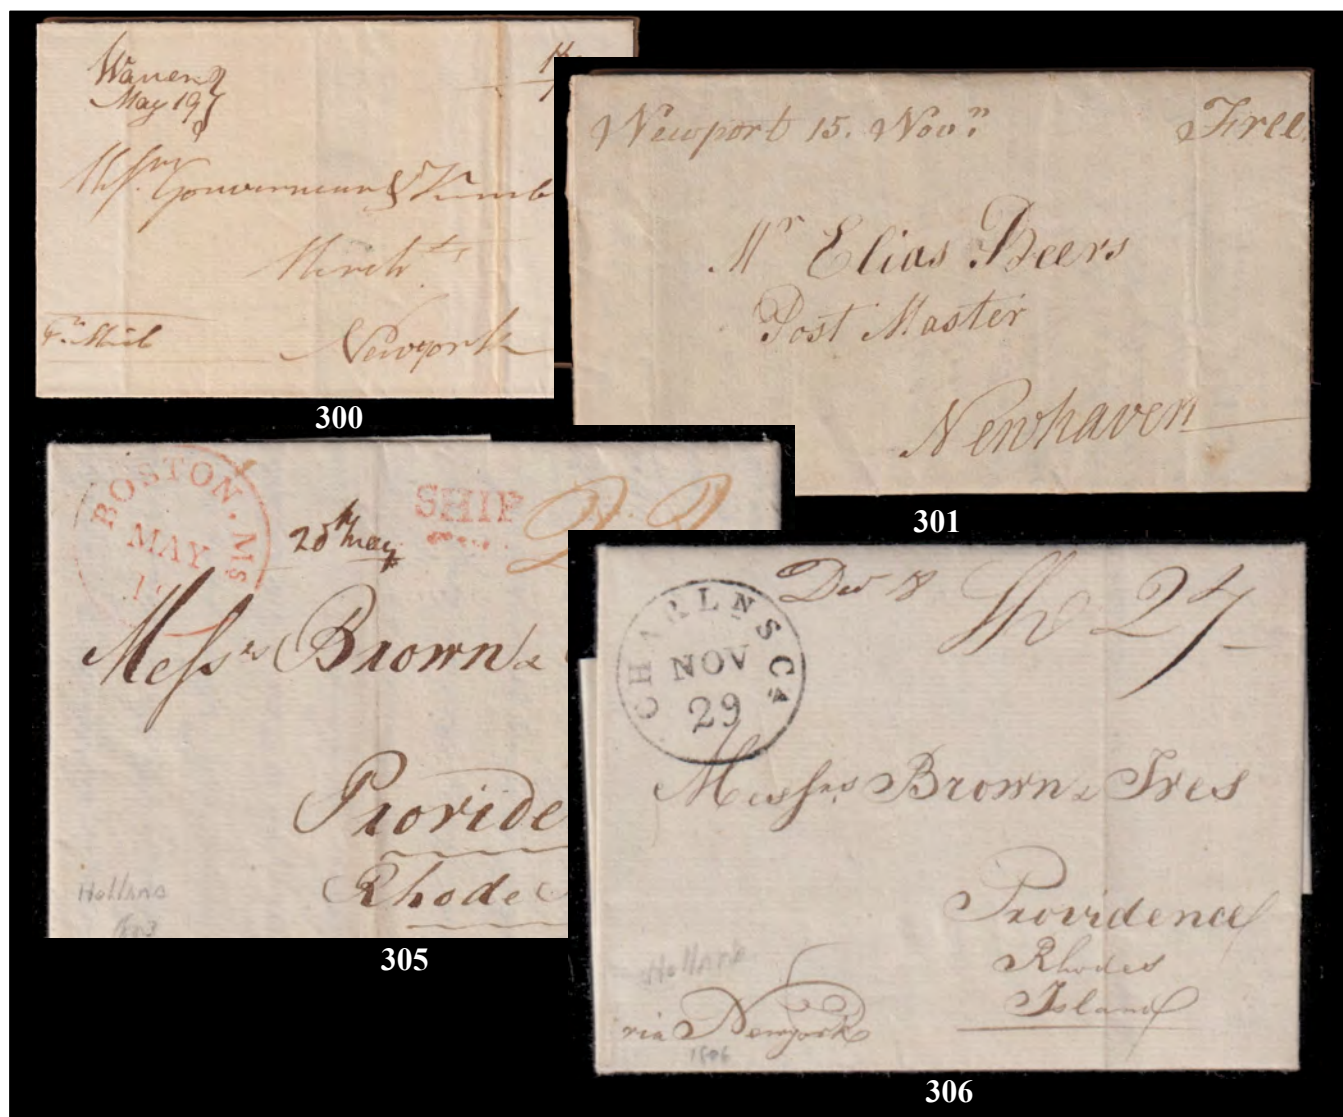 Warren
May 19
Messrs Gouverneur & Kemb
Merchts
Newyork
300
Newport 15. Novr
Free
Mr Elias Beers
Post Master
Newhaven
301
BOSTON. Ms
MAY
20th may
SHIP
Messrs Brown &
Provide
Rhode
Holland
305
CHARLNS CA
NOV
29
Dec 18
Sh 27
Messrs Brown & Ives
Providence
Rhodes
Island
Holland
via Newyork
1806
306